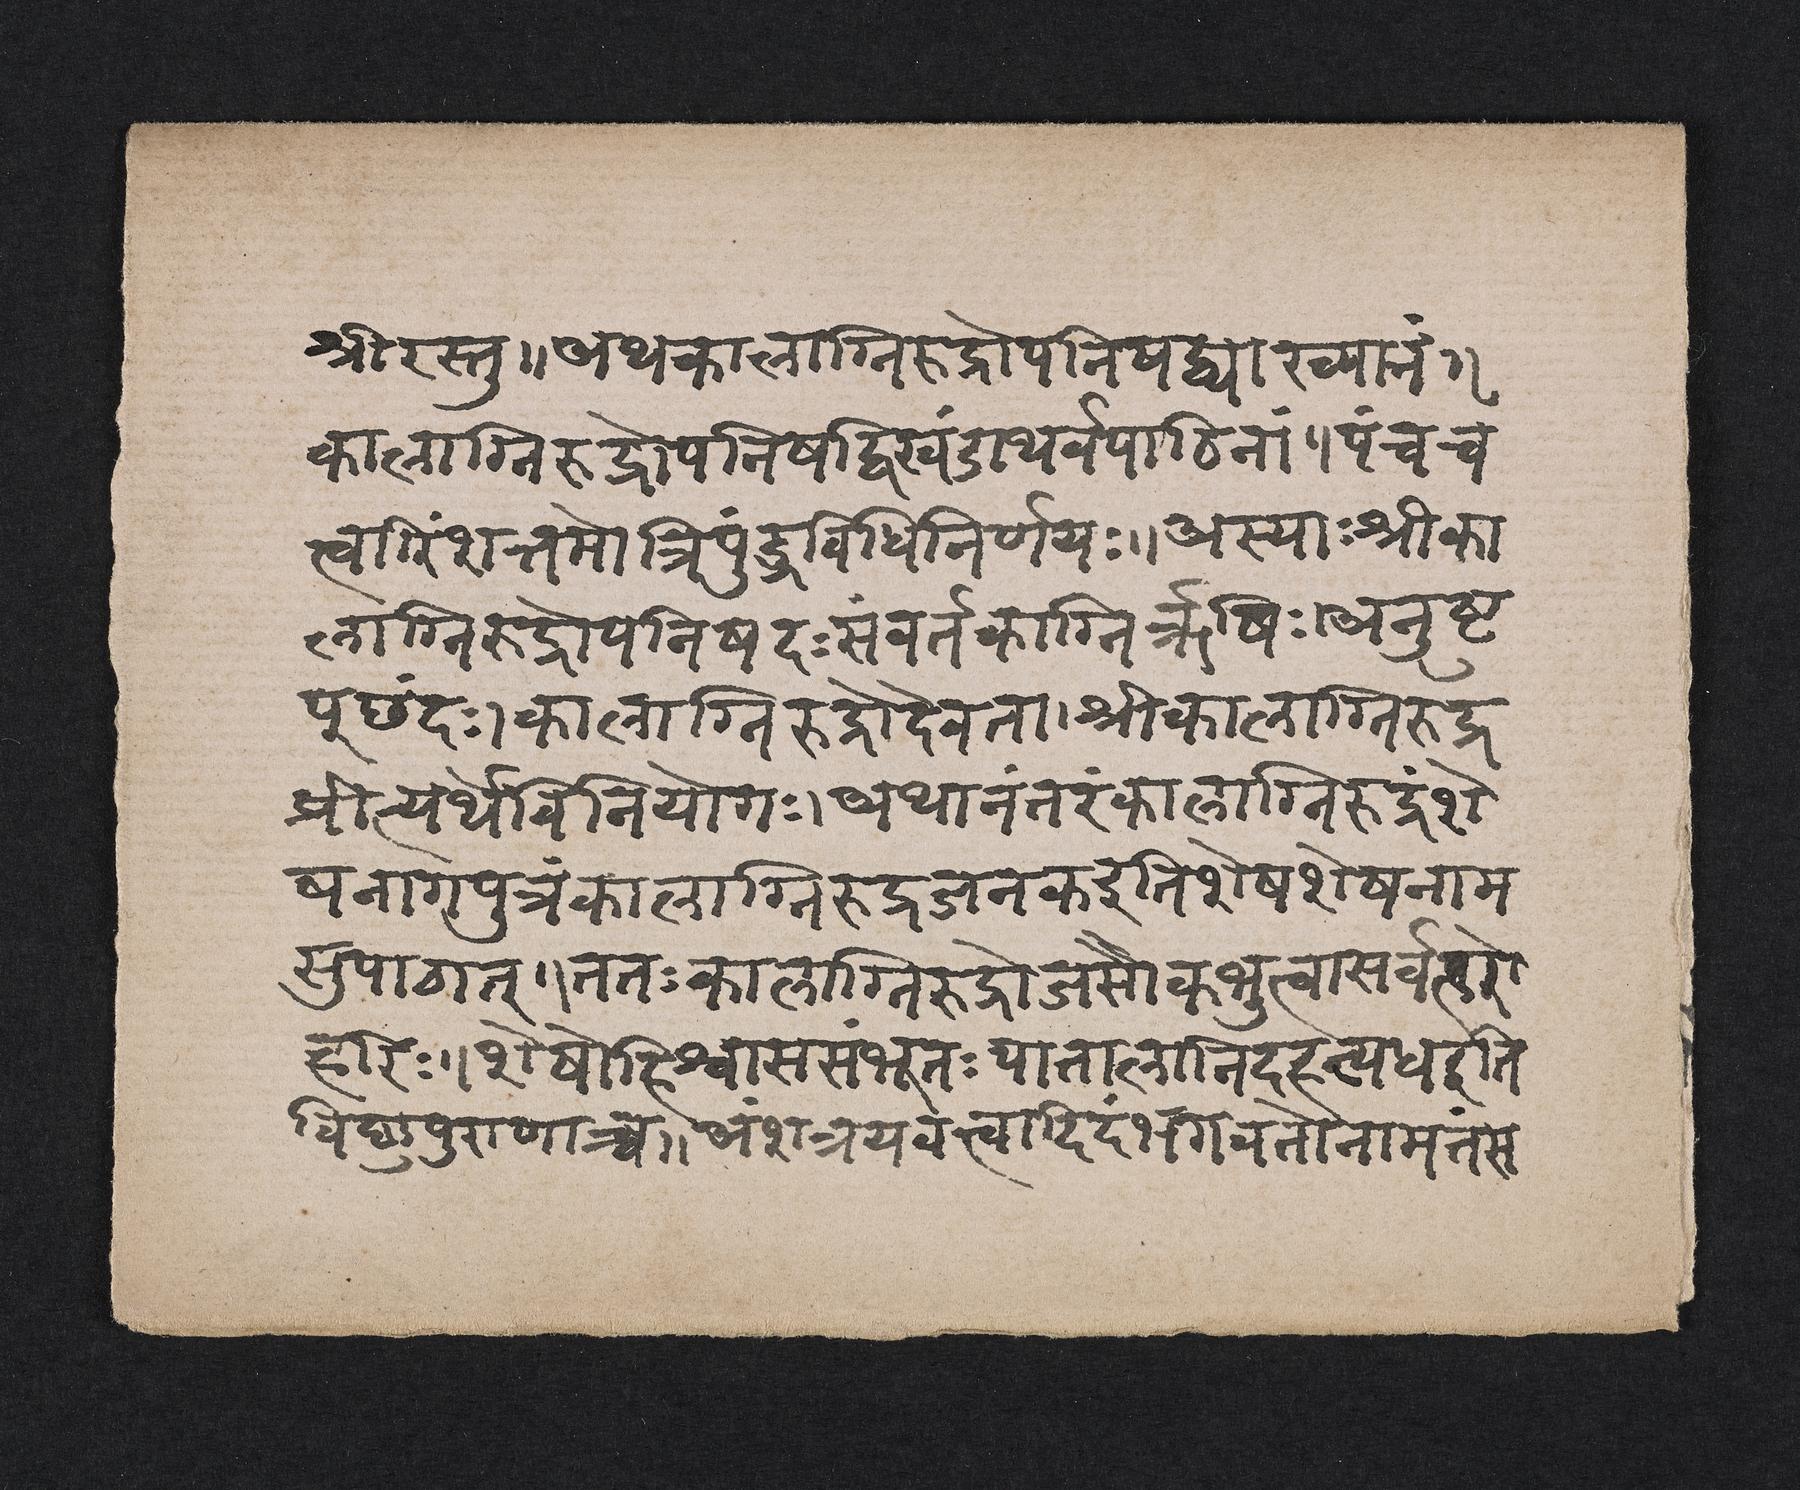 श्रीरस्तु॥अथकालाग्निरुद्रोपनिषद्व्याख्यानं॥
कालाग्निरुद्रोपनिषद्द्विखंडाथर्वपाठिनां॥पंचच
त्वारिंशत्तमोत्रिपुंड्रविधिनिर्णयः॥अस्याःश्रीका
लाग्निरुद्रोपनिषदःसंवर्तकाग्निर्ऋषिः।अनुष्टु
प्छंदः।कालाग्निरुद्रोदेवता।श्रीकालाग्निरुद्र
प्रीत्यर्थेविनियोगः।अथानंतरंकालाग्निरुद्रंशे
षनागपुत्रंकालाग्निरुद्रजनकइतिशेषशेषनाम
सुपाठात्॥ततःकालाग्निरुद्रोजसौकभुत्वासर्वहरो
हरिः॥शेषोहिश्वाससंभूतःपातालानिदहत्यधइति
विष्णुपुराणाच्च॥अंशत्रयवत्त्वादिदंभगवतोनामतंस